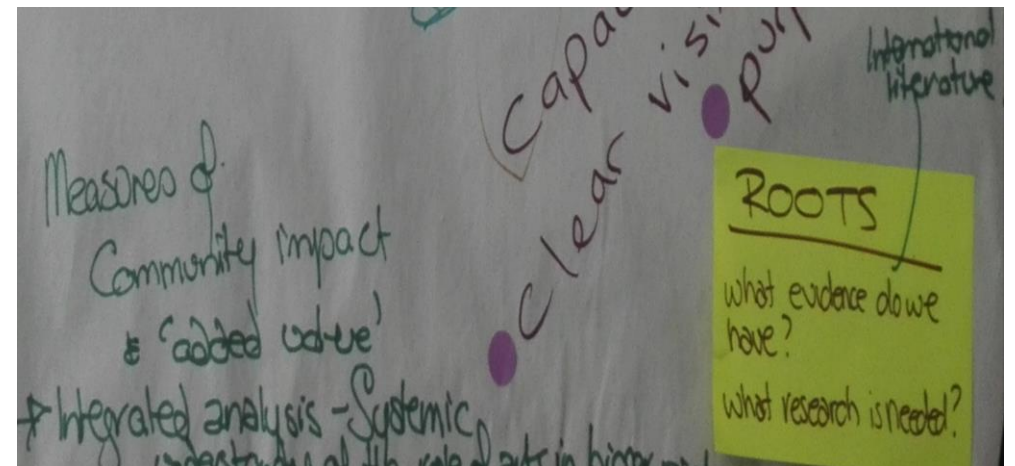 Measures of
Community impact
& 'added value'
→ Integrated analysis - Systemic
Capac
Clear visi
purp
International
literature
ROOTS
what evidence do we
have?
what research is needed?